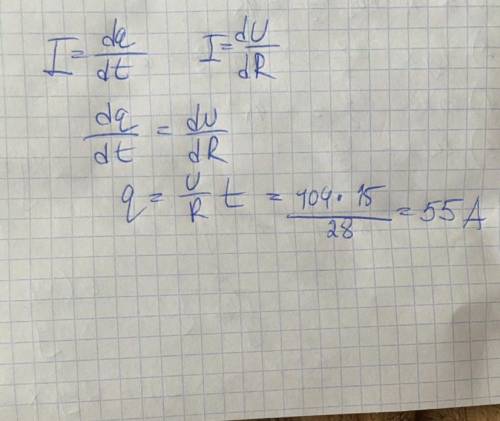 I = dq/dt I = dU/dR
dq/dt = dU/dR
q = U/R t = 104·15/28 = 55A